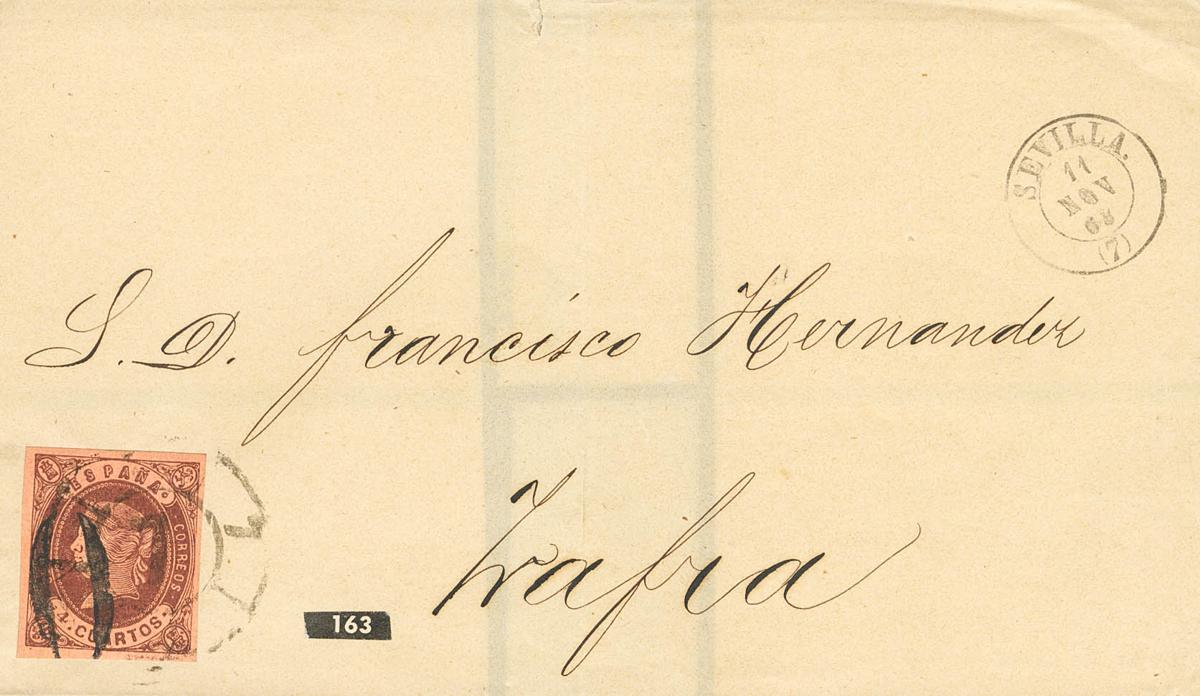 SEVILLA.
11
NOV
63
(7)
S. D. francisco Hernandez
Zafra
ESPAÑA.
CORREOS
4. CUARTOS.
163